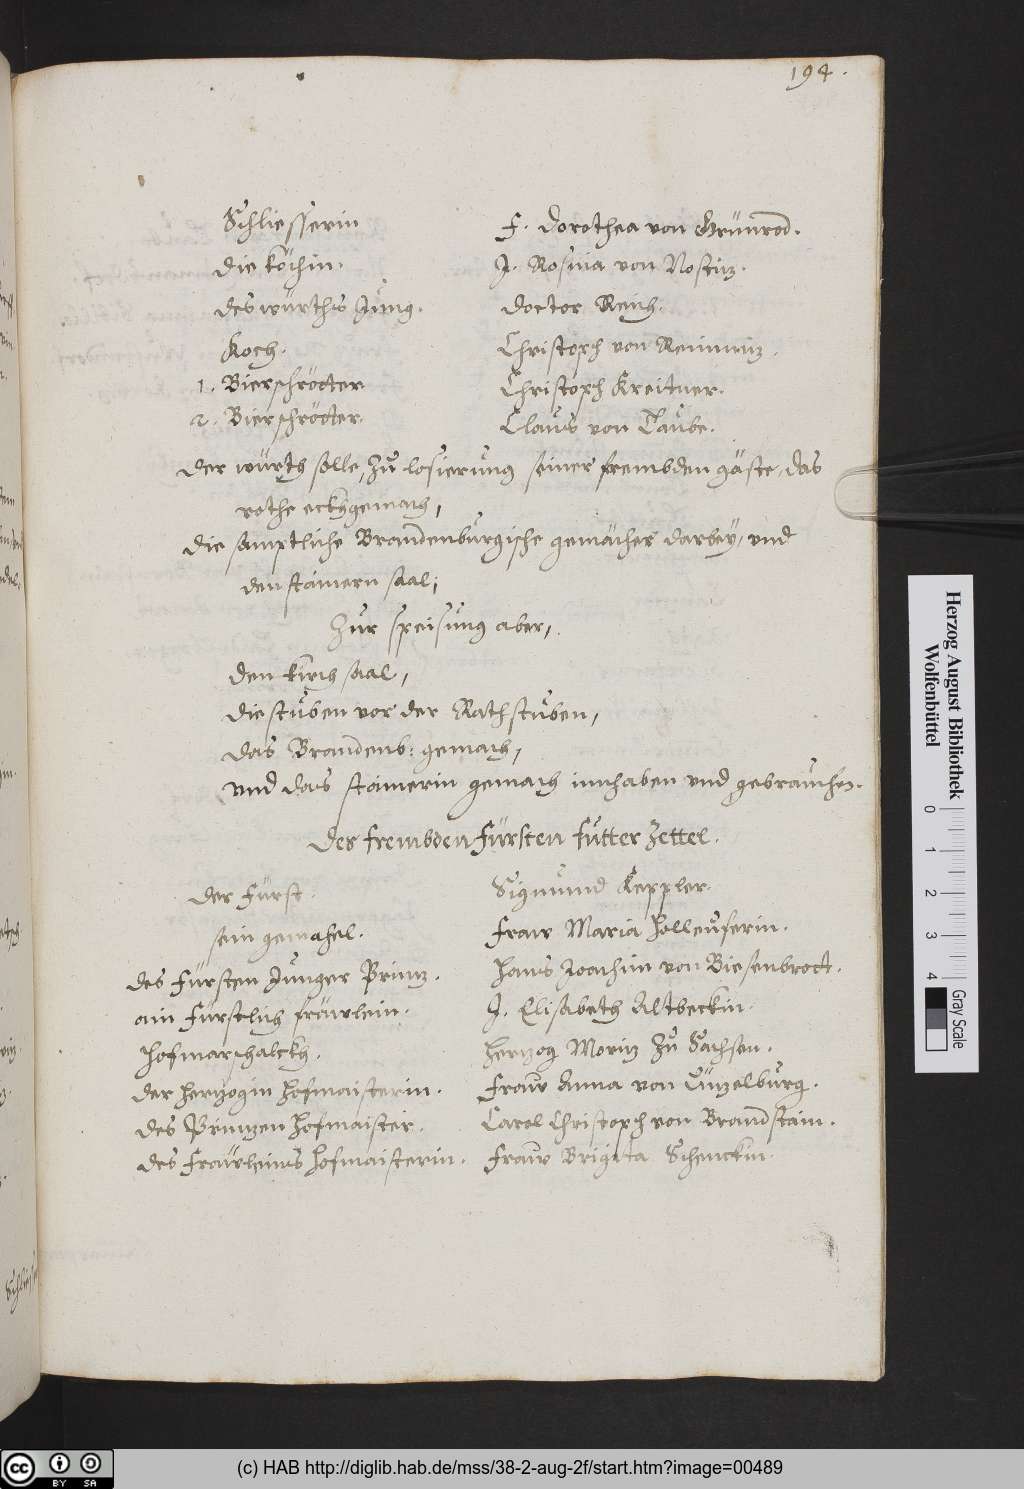 194.
Schliesserin F. Dorothea von Grünrod.
Die köchin. J. Rosina von Nostitz.
Des würths Jung. Doctor Reich.
Koch. Christoph von
1. Bierschrötter Christoph Kreitner.
2. Bierschrötter. Claus von Taube.
Der würth solle, zu losierung seiner frembden gäste, das
rothe eckhgemach,
Die samptliche Brandenburgische gemächer darbey, und
den steinern saal,
Zur speisung aber,
Den kirch saal,
Die stuben vor der Rathstuben,
Das Brandenb: gemach,
Und das gemach innhaben und gebrauchen.
Der frembden Fürsten Futter Zettel.
Der Fürst. Sigmund Keppler.
sein gemahel. Fraw Maria Holleuferin.
Des Fürsten Junger Printz. Hans Joachim von Biesenbrott.
ain Fürstlich fräwlein. J. Elisabeth Altbeckin.
Hofmarschalckh. Hertzog Moritz zu Sachsen.
Der Hertzogin Hofmaisterin. Fraw Anna von Güntzelburg.
Des Printzen Hofmaister. Carol Christoph von Brandstain.
Des Fräwleins Hofmaisterin. Fraw Brigita Schenckin.
Herzog August Bibliothek
Wolfenbüttel
0 1 2 3 4
Gray Scale
cc BY SA
(c) HAB http://diglib.hab.de/mss/38-2-aug-2f/start.htm?image=00489